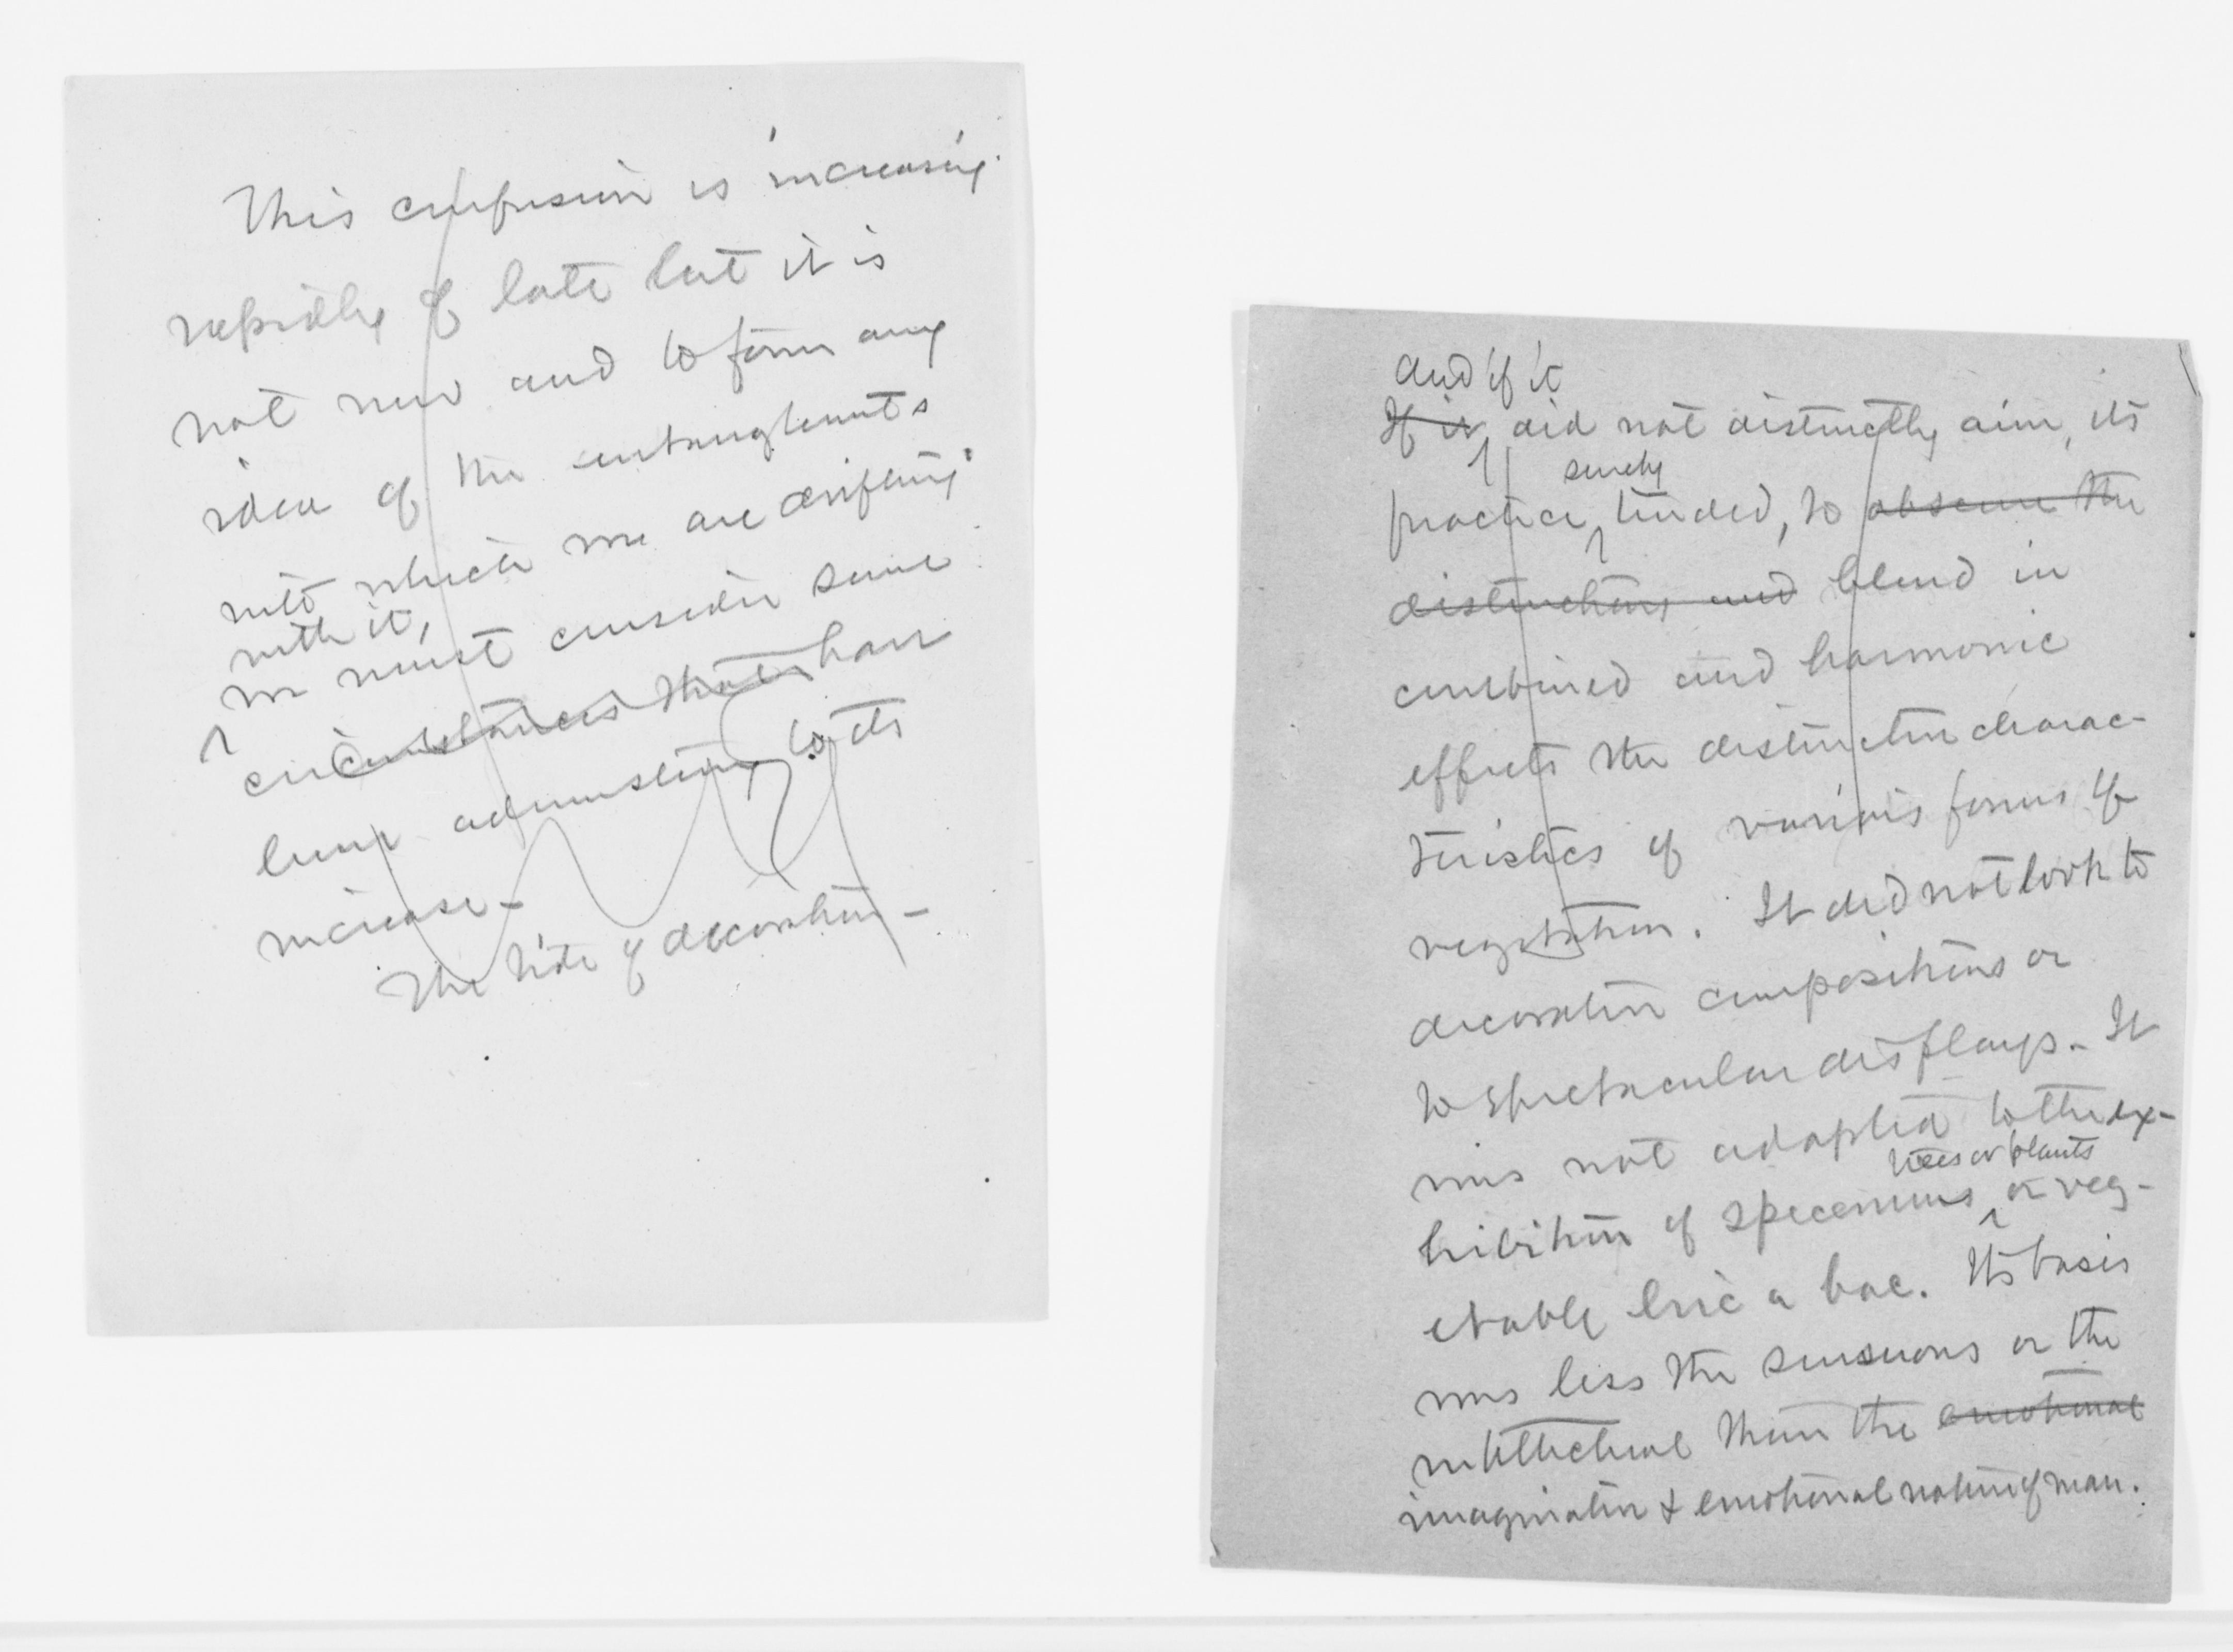 This confusion is increasing
rapidly of late but it is
not new and to form any
idea of the entanglements
into which we are drifting
with it,
we must consider some
circumstances that have
been administering to its
increase -
The tide of decoration -
And if it
If it did not distinctly aim, its
surely
practice tended, to obscure the
distinctions and blend in
combined and harmonic
effects the distinctive charac-
teristics of various forms of
vegetation. It did not look to
decorative compositions or
to spectacular displays - It
was not adapted to the ex-
trees or plants
hibition of specimens or veg-
etable bric a bac. Its basis
was less the sensuous or the
intellectual than the emotional
imaginative & emotional nature of man.